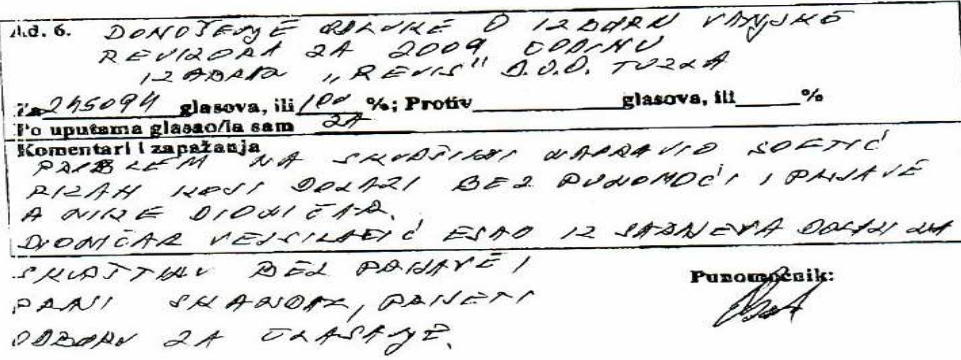 Ad. 6. DONOŠENJE ODLUKE O IZBORU VANJSKOG
REVIZORA ZA 2009 GODINU
IZABRAN "REVIS" D.O.O. TUZLA
Za 245094 glasova, ili 100 %; Protiv________glasova, ili____%
Po uputama glasao/la sam ZA
Komentari i zapažanja
PROBLEM NA SKUPŠTINI NAPRAVIO SOFTIĆ
RIZAH KOJI DOLAZI BEZ PUNOMOĆI I PRIJAVE
A NIJE DIONIČAR.
DIONIČAR VEJSILAGIĆ ESAD IZ DOLAZI NA
SKUPŠTINU BEZ PRIJAVE I
PRAVI SKANDAL, PRIJETI
ODBORU ZA GLASANJE.
Punomoćnik: